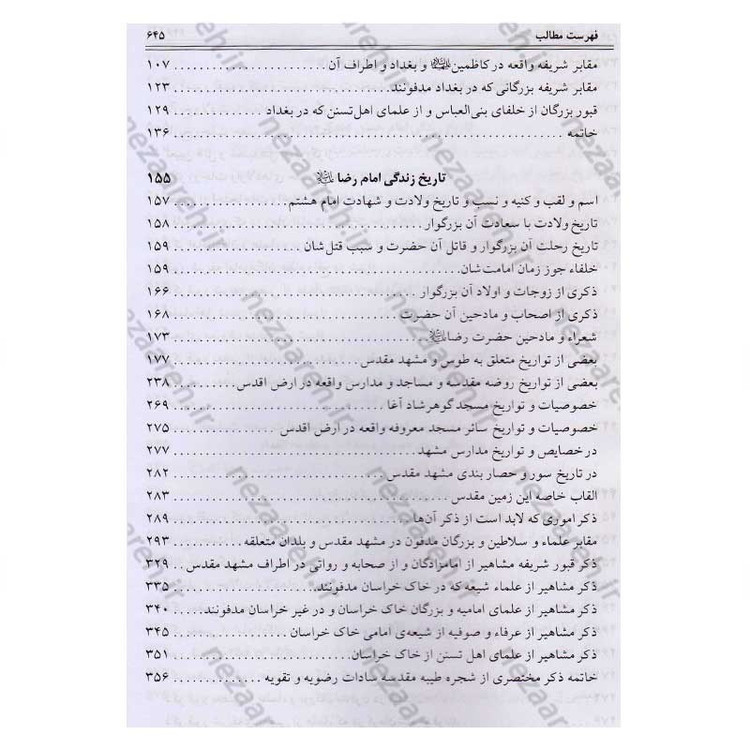 فهرست مطالب ۶۴۵
مقابر شریفه واقعه در کاظمین و بغداد و اطراف آن ۱۰۷
مقابر شریفه بزرگانی که در بغداد مدفونند ۱۲۳
قبور بزرگان از خلفای بنی‌العباس و از علمای اهل‌تسنن که در بغداد ۱۲۹
خاتمه ۱۳۶
تاریخ زندگی امام رضا ۱۵۵
اسم و لقب و کنیه و نسب و تاریخ ولادت و شهادت امام هشتم ۱۵۷
تاریخ ولادت با سعادت آن بزرگوار ۱۵۸
تاریخ رحلت آن بزرگوار و قاتل آن حضرت و سبب قتل‌شان ۱۵۹
خلفاء جوز زمان امامت‌شان ۱۵۹
ذکری از زوجات و اولاد آن بزرگوار ۱۶۶
ذکری از اصحاب و مادحین آن حضرت ۱۶۸
شعراء و مادحین حضرت رضا ۱۷۳
بعضی از تواریخ متعلق به طوس و مشهد مقدس ۱۷۷
بعضی از تواریخ روضه مقدسه و مساجد و مدارس واقعه در ارض اقدس ۲۳۸
خصوصیات و تواریخ مسجد گوهرشاد آغا ۲۶۹
خصوصیات و تواریخ سائر مسجد معروفه واقعه در ارض اقدس ۲۷۵
در خصایص و تواریخ مدارس مشهد ۲۷۷
در تاریخ سور و حصار بندی مشهد مقدس ۲۸۲
القاب خاصه این زمین مقدس ۲۸۳
ذکر اموری که لابد است از ذکر آن‌ها ۲۸۹
مقابر علماء و سلاطین و بزرگان مدفون در مشهد مقدس و بلدان متعلقه ۲۹۳
ذکر قبور شریفه مشاهیر از امامزادگان و از صحابه و رواتی در اطراف مشهد مقدس ۳۲۹
ذکر مشاهیر از علماء شیعه که در خاک خراسان مدفونند ۳۳۵
ذکر مشاهیر از علمای امامیه و بزرگان خاک خراسان و در غیر خراسان مدفونند ۳۴۰
ذکر مشاهیر از عرفاء و صوفیه از شیعه‌ی امامی خاک خراسان ۳۴۵
ذکر مشاهیر از علمای اهل تسنن از خاک خراسان ۳۵۱
خاتمه ذکر مختصری از شجره طیبه مقدسه سادات رضویه و تقویه ۳۵۶
nezaareh.ir